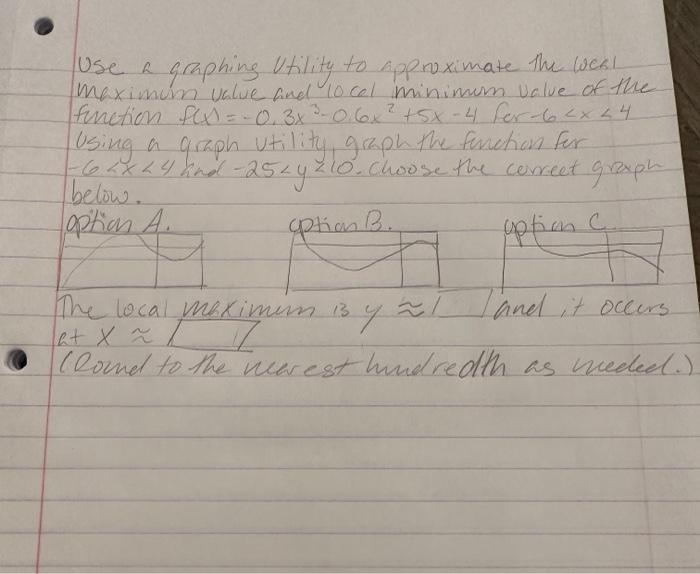 Use a graphing Utility to approximate the local
maximum value and local minimum value of the
function f(x) = -0.3x³-0.6x²+5x-4 for -6<x<4
Using a graph utility, graph the function for
-6<x<4 and -25<y<10. Choose the correct graph
below.
option A. option B. option C.
The local maximum is y ≈ and it occurs
at x ≈
(Round to the nearest hundredth as needed.)